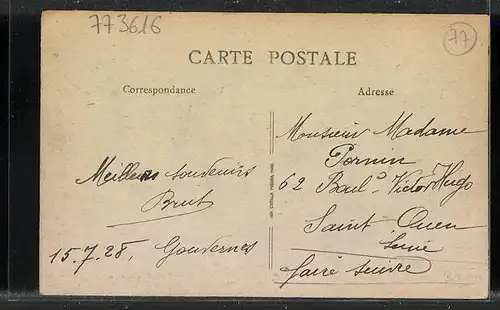 773616
77
CARTE POSTALE
Correspondance
Adresse
Monsieur Madame
Pornin
62 Boul.d Victor Hugo
Saint-Ouen
Seine
faire suivre
Meilleurs souvenirs
Brut
15.7.28, Gouvernes